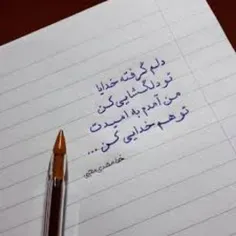 دلم گرفته خدایا
تو دلگشایی کن
من آمدم به امیدت
تو هم خدایی کن ...